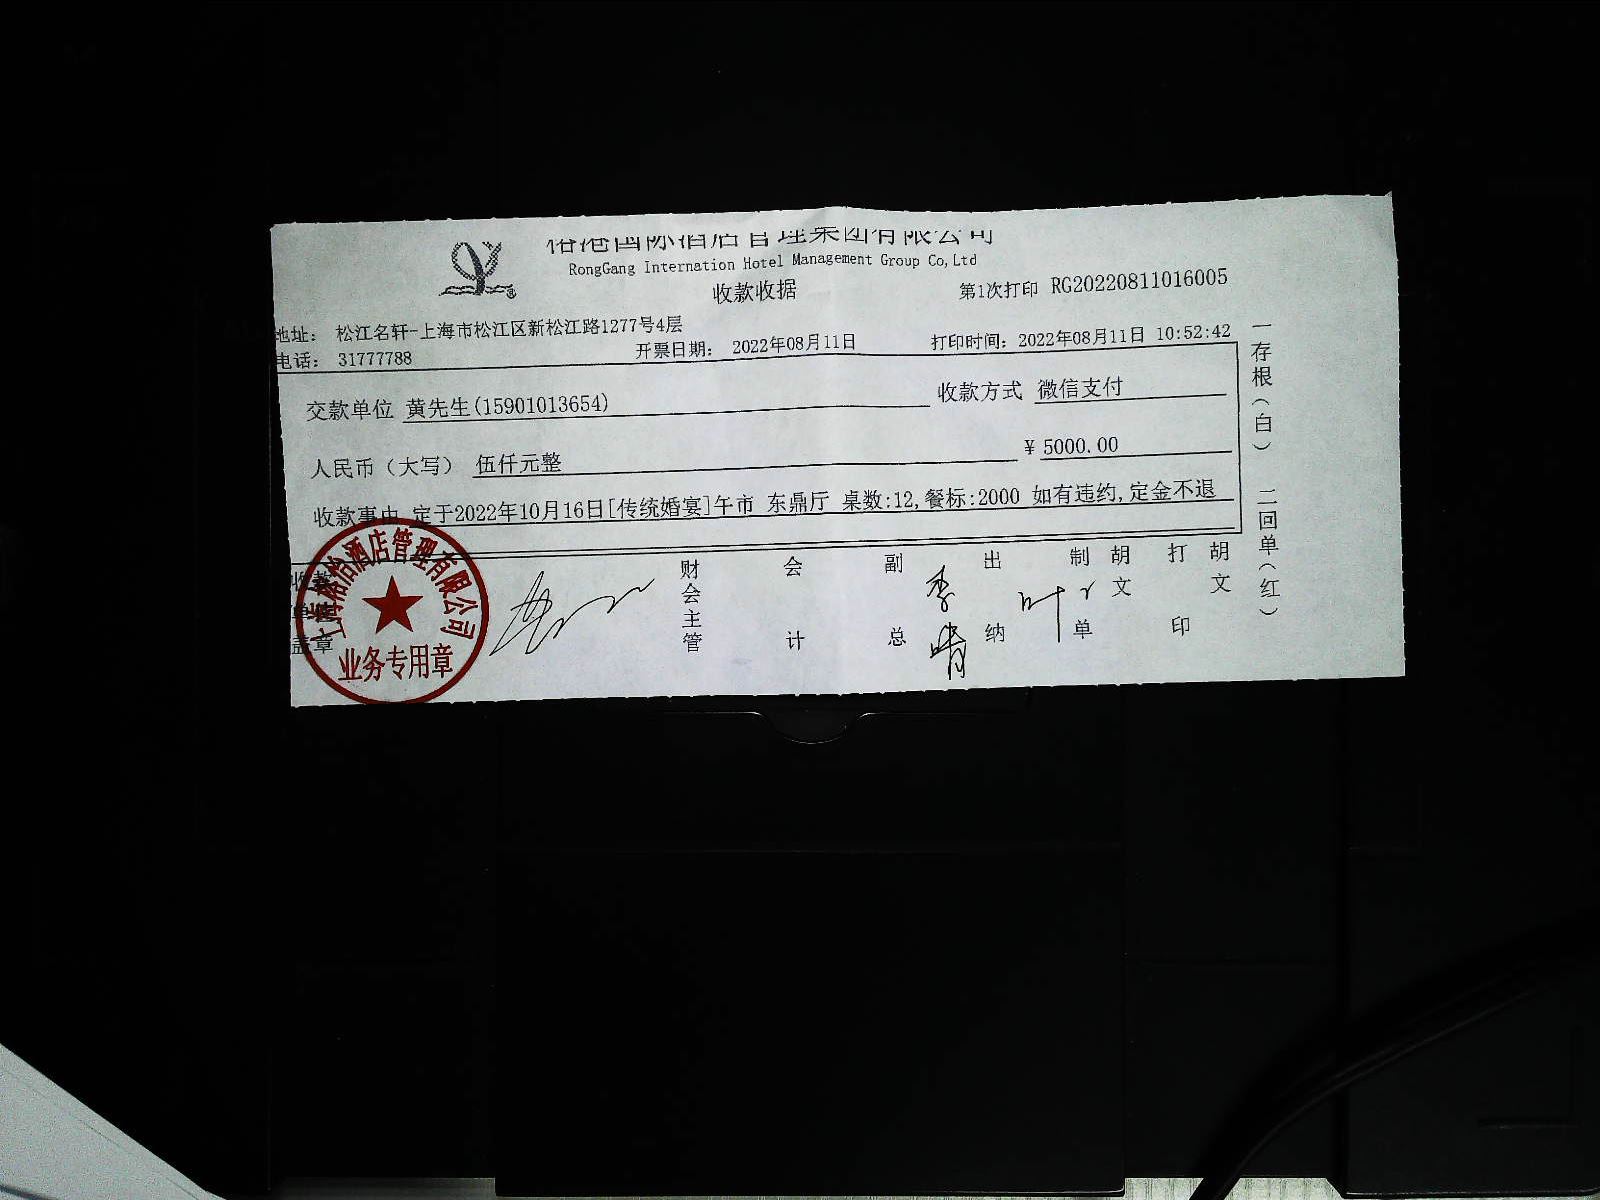 榕港国际酒店管理集团有限公司
RongGang Internation Hotel Management Group Co,Ltd
收款收据
第1次打印 RG20220811016005
地址： 松江名轩-上海市松江区新松江路1277号4层
电话： 31777788
开票日期： 2022年08月11日
打印时间：2022年08月11日 10:52:42
交款单位 黄先生(15901013654)
收款方式 微信支付
人民币（大写） 伍仟元整
¥ 5000.00
收款事由 定于2022年10月16日[传统婚宴]午市 东鼎厅 桌数:12,餐标:2000 如有违约,定金不退
收款
单位
盖章
酒店管理有限公司
业务专用章
财会主管
会计
副总
李晴
出纳
叶
制单
胡文
打印
胡文
一存根（白） 二回单（红）